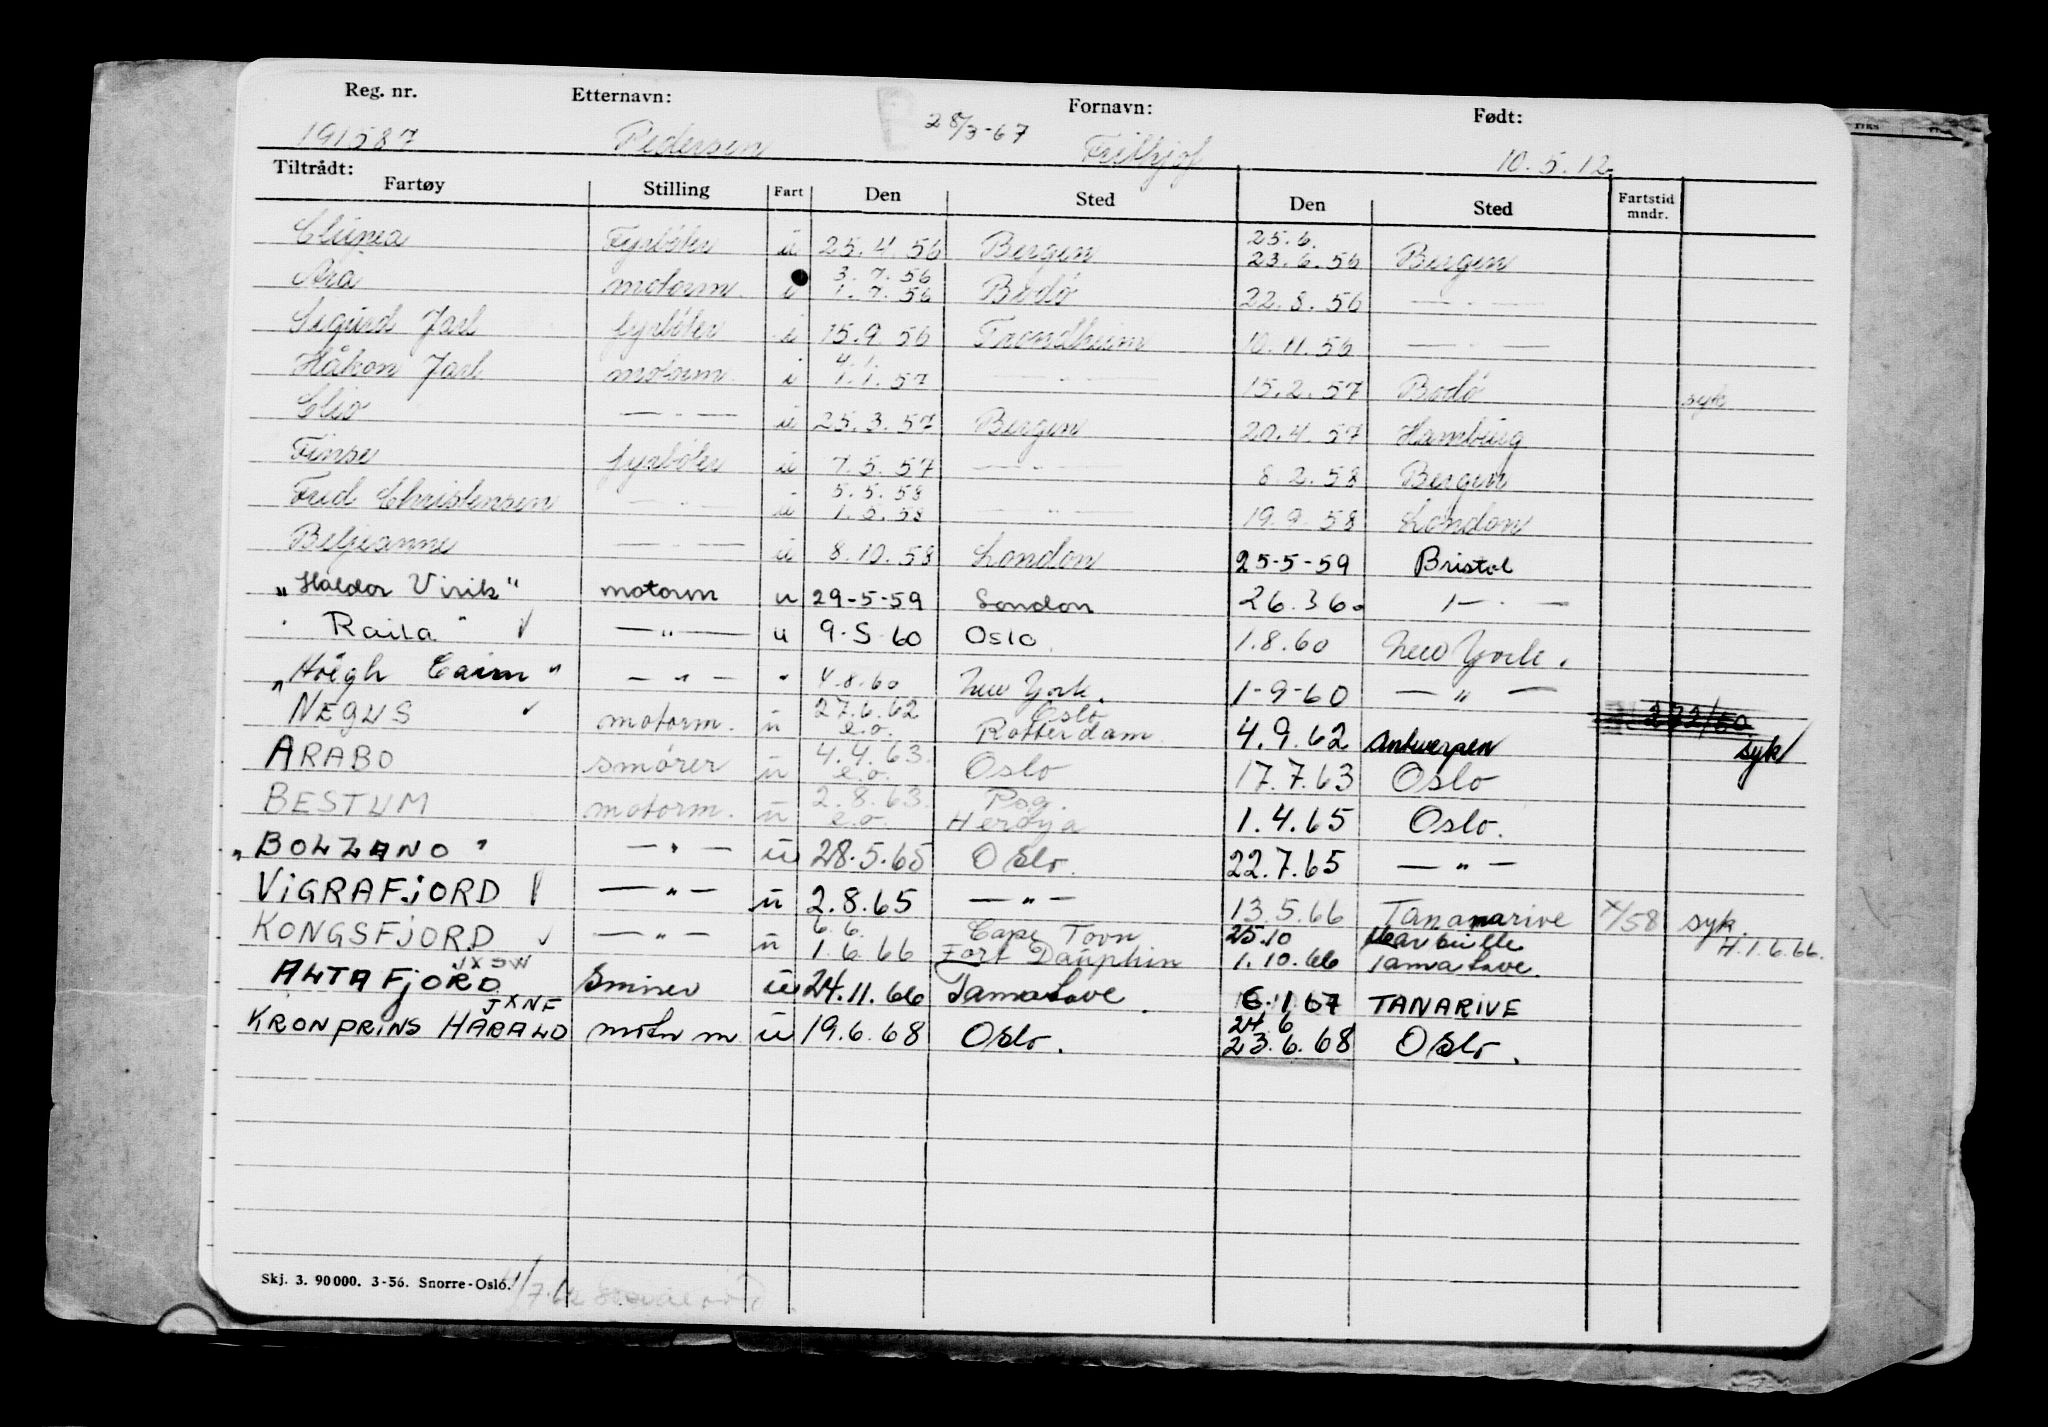 Reg. nr. Etternavn: Fornavn: Født:
191587 Pedersen 28/3-67 Frithjof 10.5.12.
Tiltrådt:
Fartøy Stilling Fart Den Sted Den Sted Fartstid mndr.
25.6.
Clypea Fyrböter u 25.4.56 Bergen 23.6.56 Bergen
3.7.56
motorm. i 1.7.56 Bodö 22.8.56 — " —
Sigurd Jarl fyrböter i 15.9.56 Trondheim 10.11.56 — " —
4.1.
Håkon Jarl motorm. i 1.1.57 — " — 15.2.57 Bodö syk
Clio — " — u 25.3.57 Bergen 20.4.57 Hamburg
Finse fyrböter u 7.5.57 — " — 8.2.58 Bergen
5.5.58
Fred Christensen — " — u 1.5.58 — " — 19.9.58 London
Beljeanne — " — u 8.10.58 London 25-5-59 Bristol
"Haldor Virik" motorm u 29-5-59 London 26.3 60 — " —
Raila" √ — " — u 9.5.60 Oslo 1.8.60 New York.
"Höegh Cairn" — " — " 4.8.60 New York. 1-9-60 — " —
27.6.62 Oslo
NEGUS √ motorm. u e.o. Rotterdam 4.9.62 Antwerpen syk
4.4.63.
ARABO smører u e.o. Oslo 17.7.63 Oslo
2.8.63. Psg.
BESTUM motorm. u e.o. Herøya 1.4.65 Oslo.
"BOLZANO" — " — u 28.5.65 Oslo. 22.7.65 — " —
VIGRAFJORD √ — " — u 2.8.65 — " — 13.5.66 Tananarive x/58 syk.
6.6. Cape Town 25.10 H.1.6.66.
KONGSFJORD √ — " — u 1.6.66 Fort Dauphin 1.10.66 Tamatave.
JXSW
ALTAFJORD Smører u 24.11.66 Tamatave. 6.1.67 TANARIVE
JXNF 24.6
KRONPRINS HARALD motor m u 19.6.68 Oslo. 23.6.68 Oslo.
Skj. 3. 90000. 3-56. Snorre-Oslo.